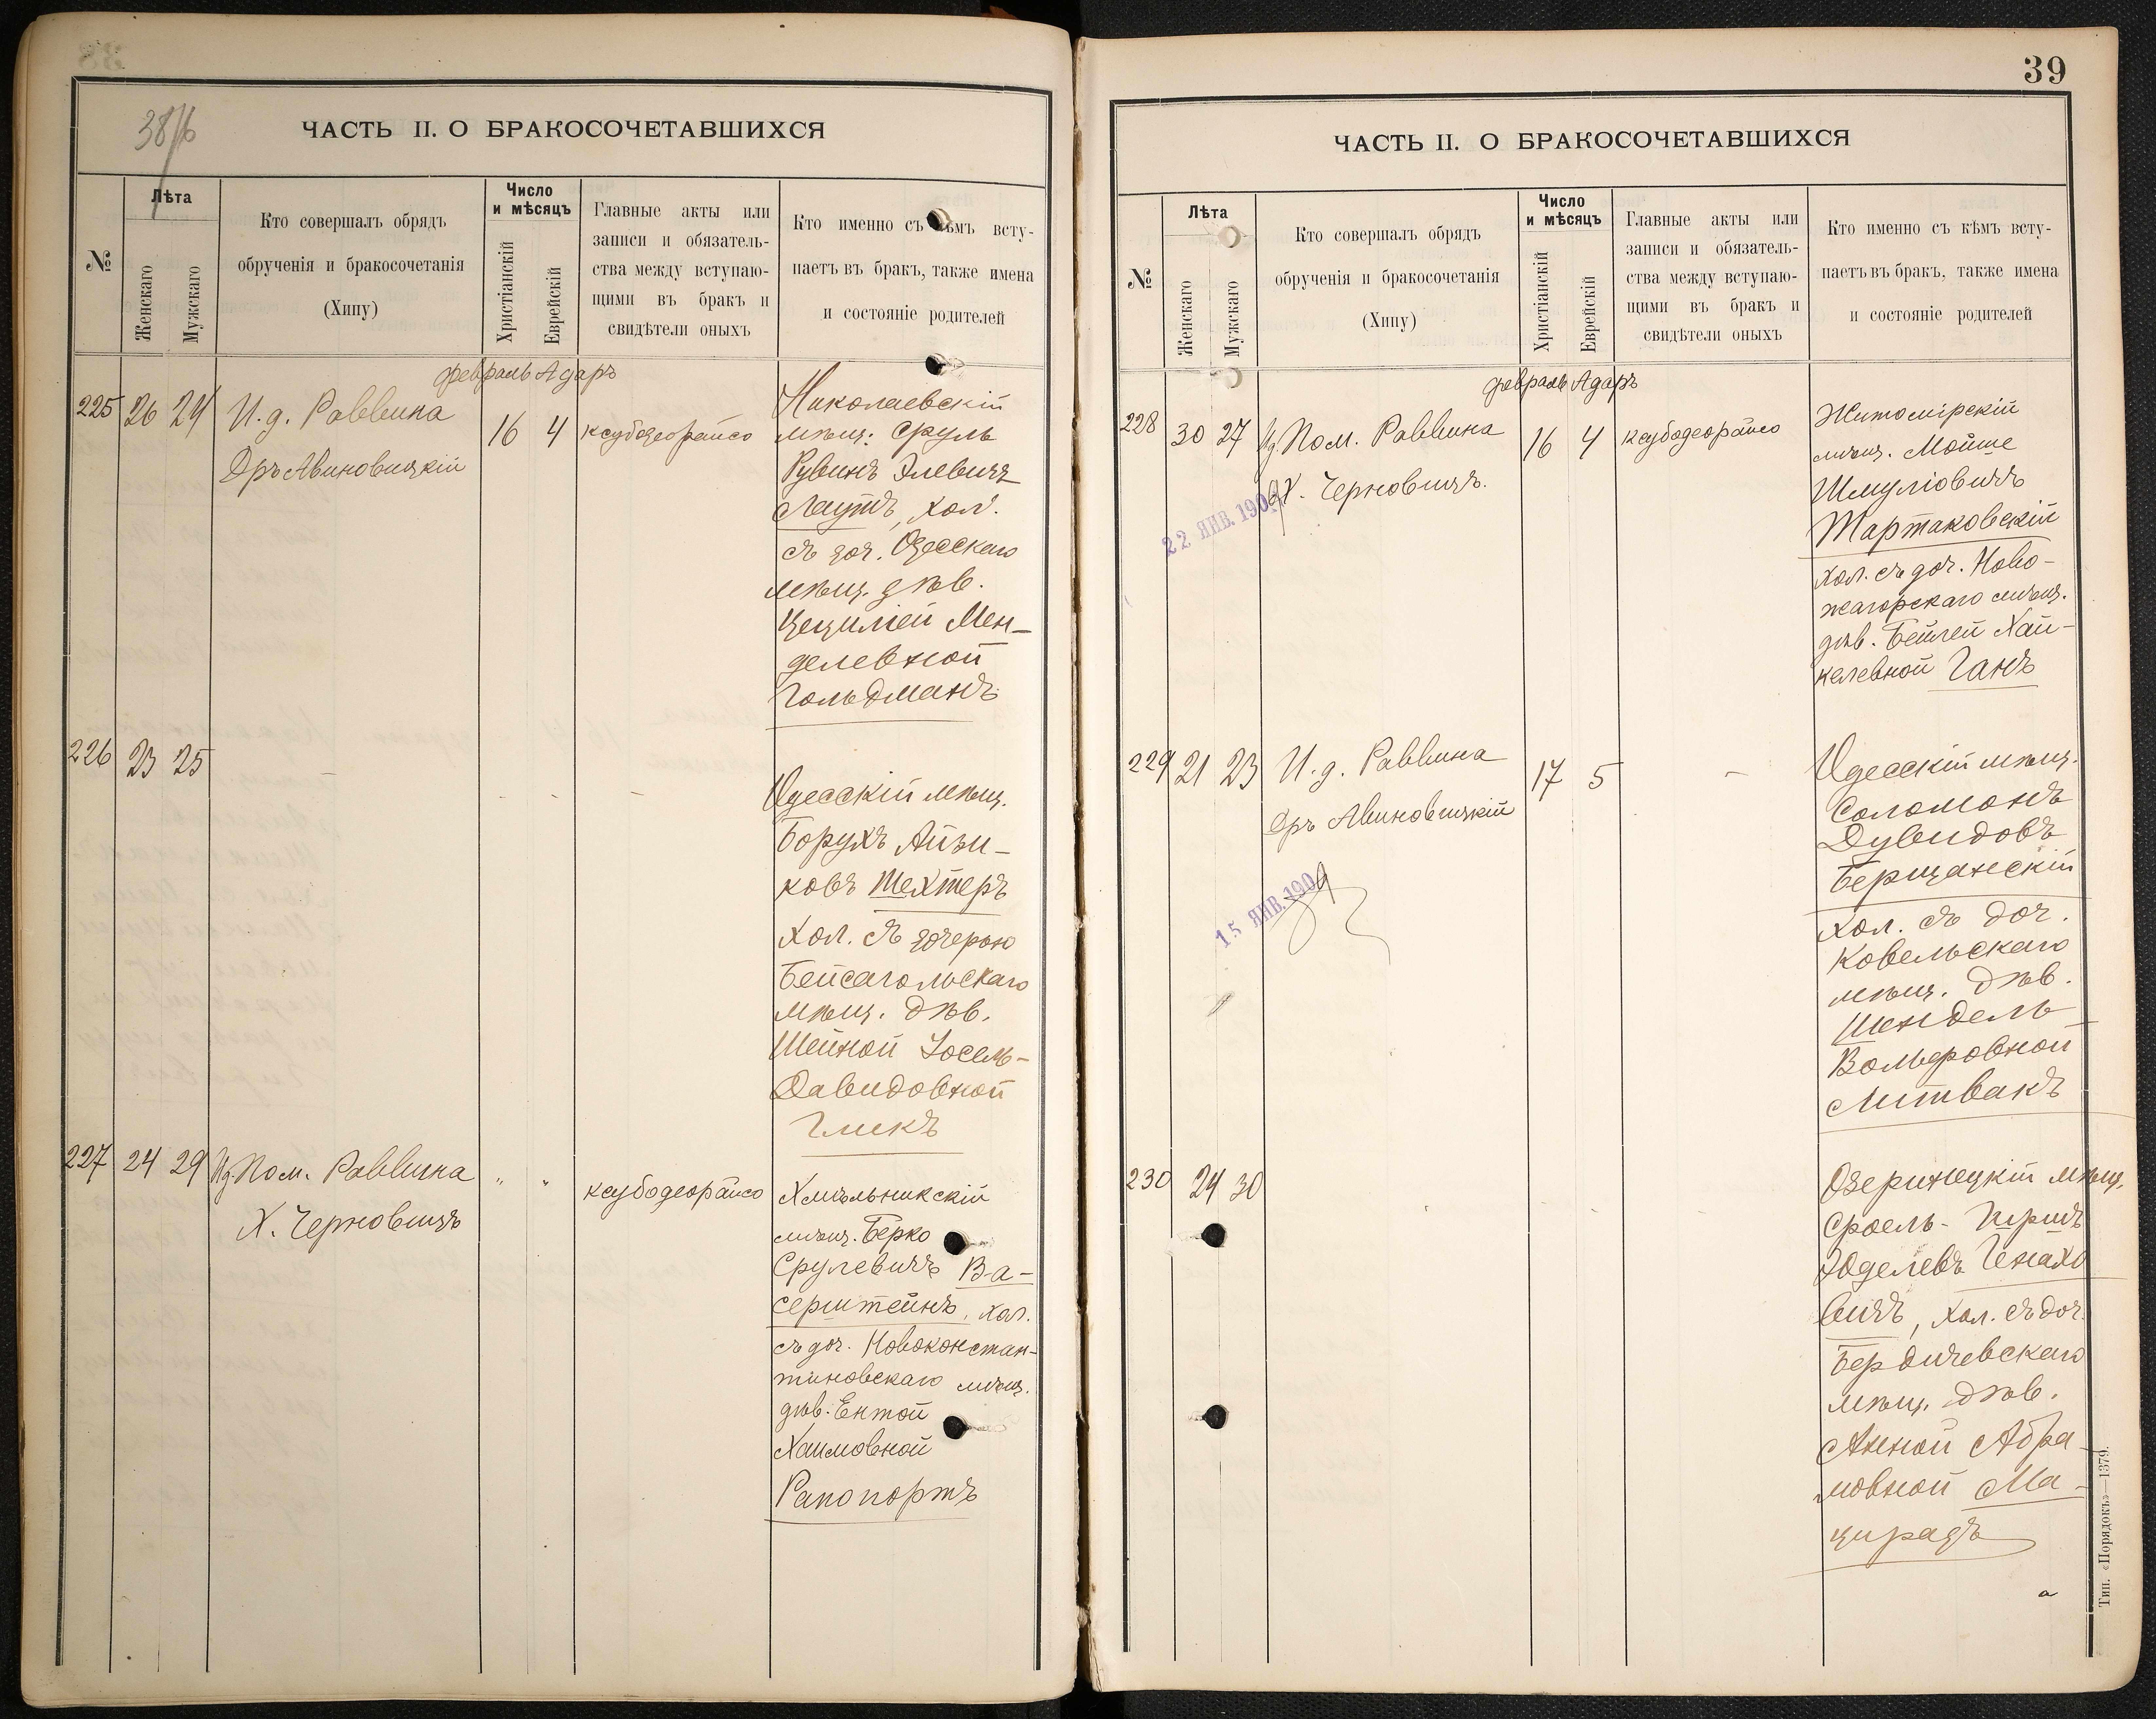 38/б
ЧАСТЬ II. О БРАКОСОЧЕТАВШИХСЯ
№
Лѣта
Женскаго
Мужскаго
Кто совершалъ обрядъ
обрученія и бракосочетанія
(Хипу)
Число
и мѣсяцъ
Христіанскій
Еврейскій
Главные акты или
записи и обязатель-
ства между вступаю-
щими въ бракъ и
свидѣтели оныхъ
Кто именно съ кѣмъ всту-
паетъ въ бракъ, также имена
и состояніе родителей
февраль Адаръ
225 26 24 И. д. Раввина 16 4 ксубодеорайсо
Дръ Авиновицкій
Николаевскій
мѣщ. Сруль
Рувинъ Элевичъ
Лаутъ, хол.
съ доч. Одесскаго
мѣщ. дѣв.
Цецилией Мен-
делевной
Гольдманъ
226 23 25 - - -
Одесскій мѣщ.
Борухъ Айзи-
ковъ Шехтеръ
хол. съ дочерью
Бейсагольскаго
мѣщ. дѣв.
Шейной Іосель-
Давидовной
Гликъ
227 24 29 И.д. Пом. Раввина " " ксубодеорайсо
Х. Черновичъ
Хмѣльникскій
мѣщ. Берко
Срулевичъ Ва-
серштейнъ, хол.
съ доч. Новоконстан-
тиновскаго мѣщ.
дѣв. Ентой
Хаимовной
Рапопортъ
39
ЧАСТЬ II. О БРАКОСОЧЕТАВШИХСЯ
№
Лѣта
Женскаго
Мужскаго
Кто совершалъ обрядъ
обрученія и бракосочетанія
(Хипу)
Число
и мѣсяцъ
Христіанскій
Еврейскій
Главные акты или
записи и обязатель-
ства между вступаю-
щими въ бракъ и
свидѣтели оныхъ
Кто именно съ кѣмъ всту-
паетъ въ бракъ, также имена
и состояніе родителей
февраль Адаръ
228 30 27 И.д. Пом. Раввина 16 4 ксубодеорайсо
Х. Черновичъ.
22 ЯНВ. 1909
Житомірскій
мѣщ. Мойше
Шмуліовичъ
Тартаковскій
хол. съ доч. Ново-
жагорскаго мѣщ.
дѣв. Бейлей Хай-
келевной Ганъ
229 21 23 И. д. Раввина 17 5 -
Дръ Авиновицкій
15 ЯНВ. 190
Одесскій мѣщ.
Соломонъ
Дувидовъ
Берщанскій
хол. съ доч.
Ковельскаго
мѣщ. дѣв.
Шендель
Вольфовной
Литвакъ
230 24 30
Озеринецкій мѣщ.
Сроель-Гиршъ
Юделевъ Генахо
вичъ, хол. съ доч.
Бердичевскаго
мѣщ. дѣв.
Анной Абра-
мовной Ма-
цирадъ
Тип. «Порядокъ»—1379.